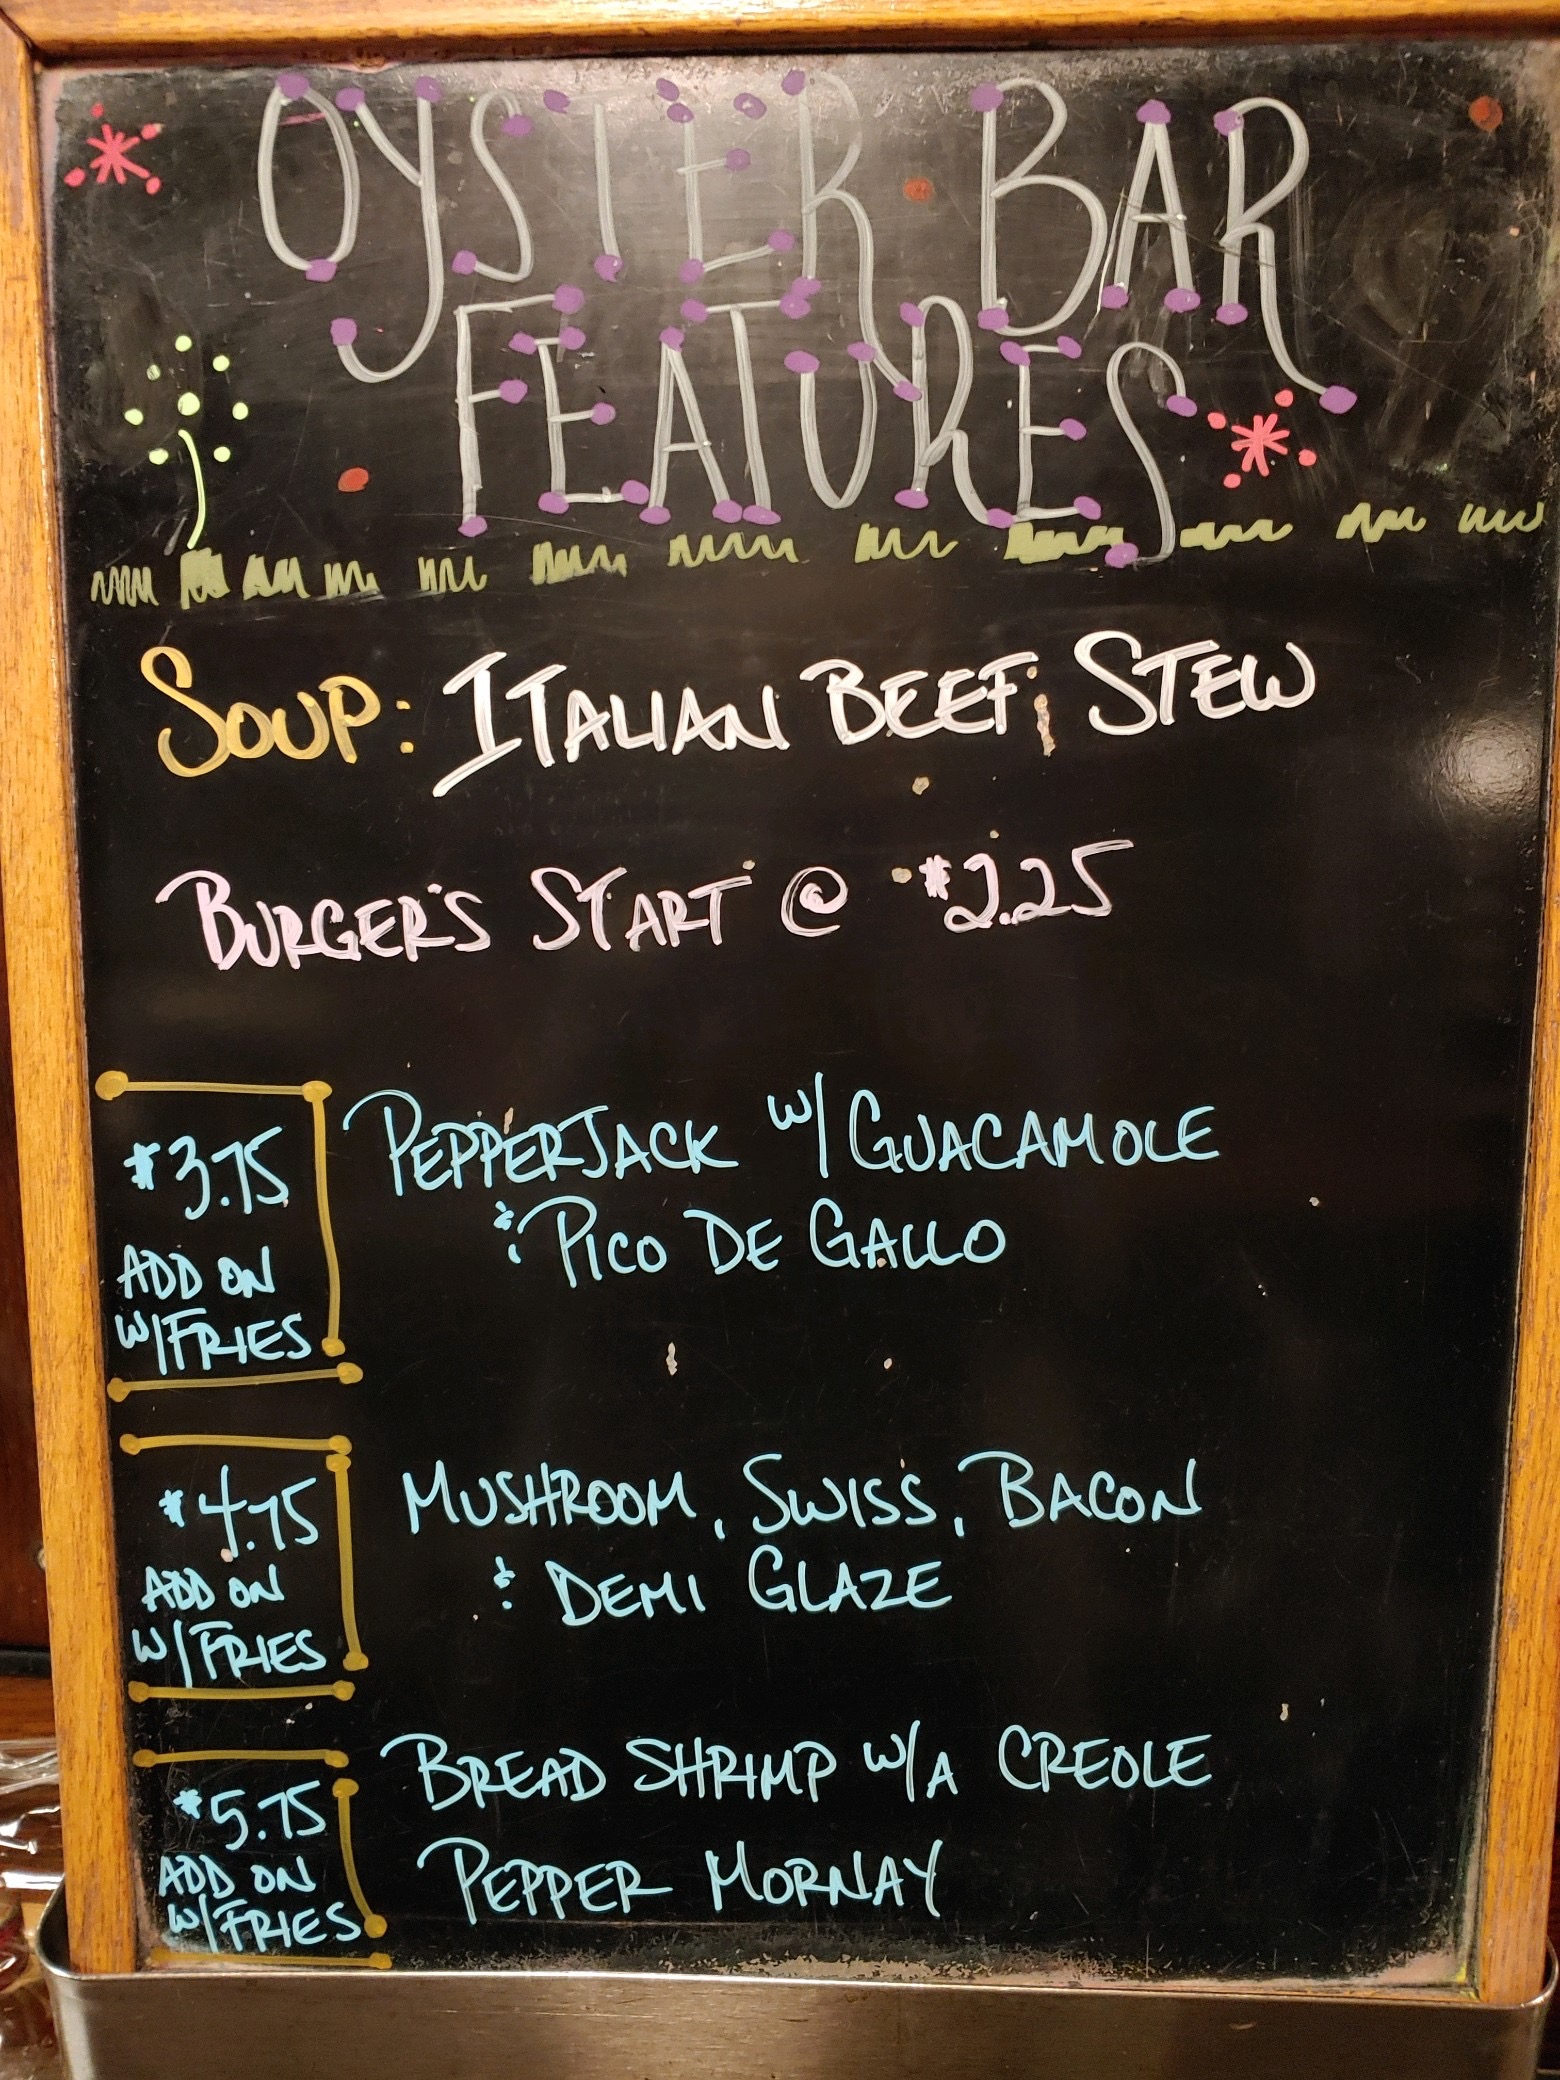 OYSTER BAR
FEATURES
SOUP: ITALIAN BEEF STEW
BURGER'S START @ $2.25
$3.75
ADD ON
W/FRIES
PEPPERJACK W/ GUACAMOLE
& PICO DE GALLO
$4.75
ADD ON
W/FRIES
MUSHROOM, SWISS, BACON
& DEMI GLAZE
$5.75
ADD ON
W/FRIES
BREAD SHRIMP W/A CREOLE
PEPPER MORNAY